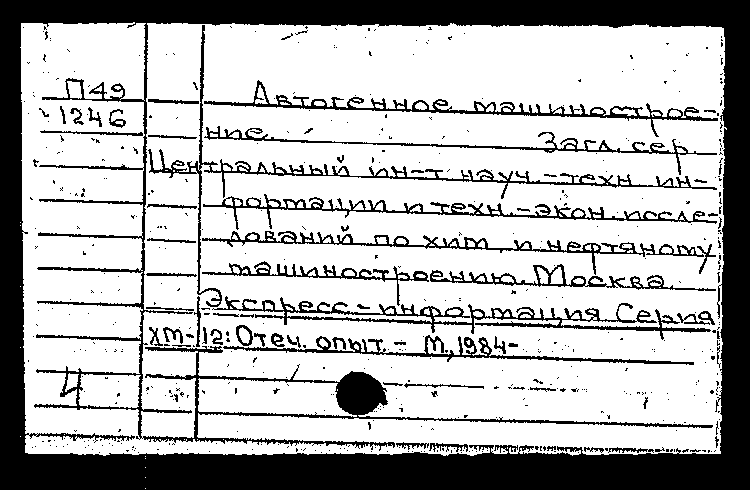 П49
1246
Автогенное машинострое-
ние. Загл. сер.
Центральный ин-т науч.-техн. ин-
формации и техн.-экон. иссле-
дований по хим. и нефтяному
машиностроению. Москва.
Экспресс-информация. Серия
ХМ-12: Отеч. опыт. - М., 1984-
4